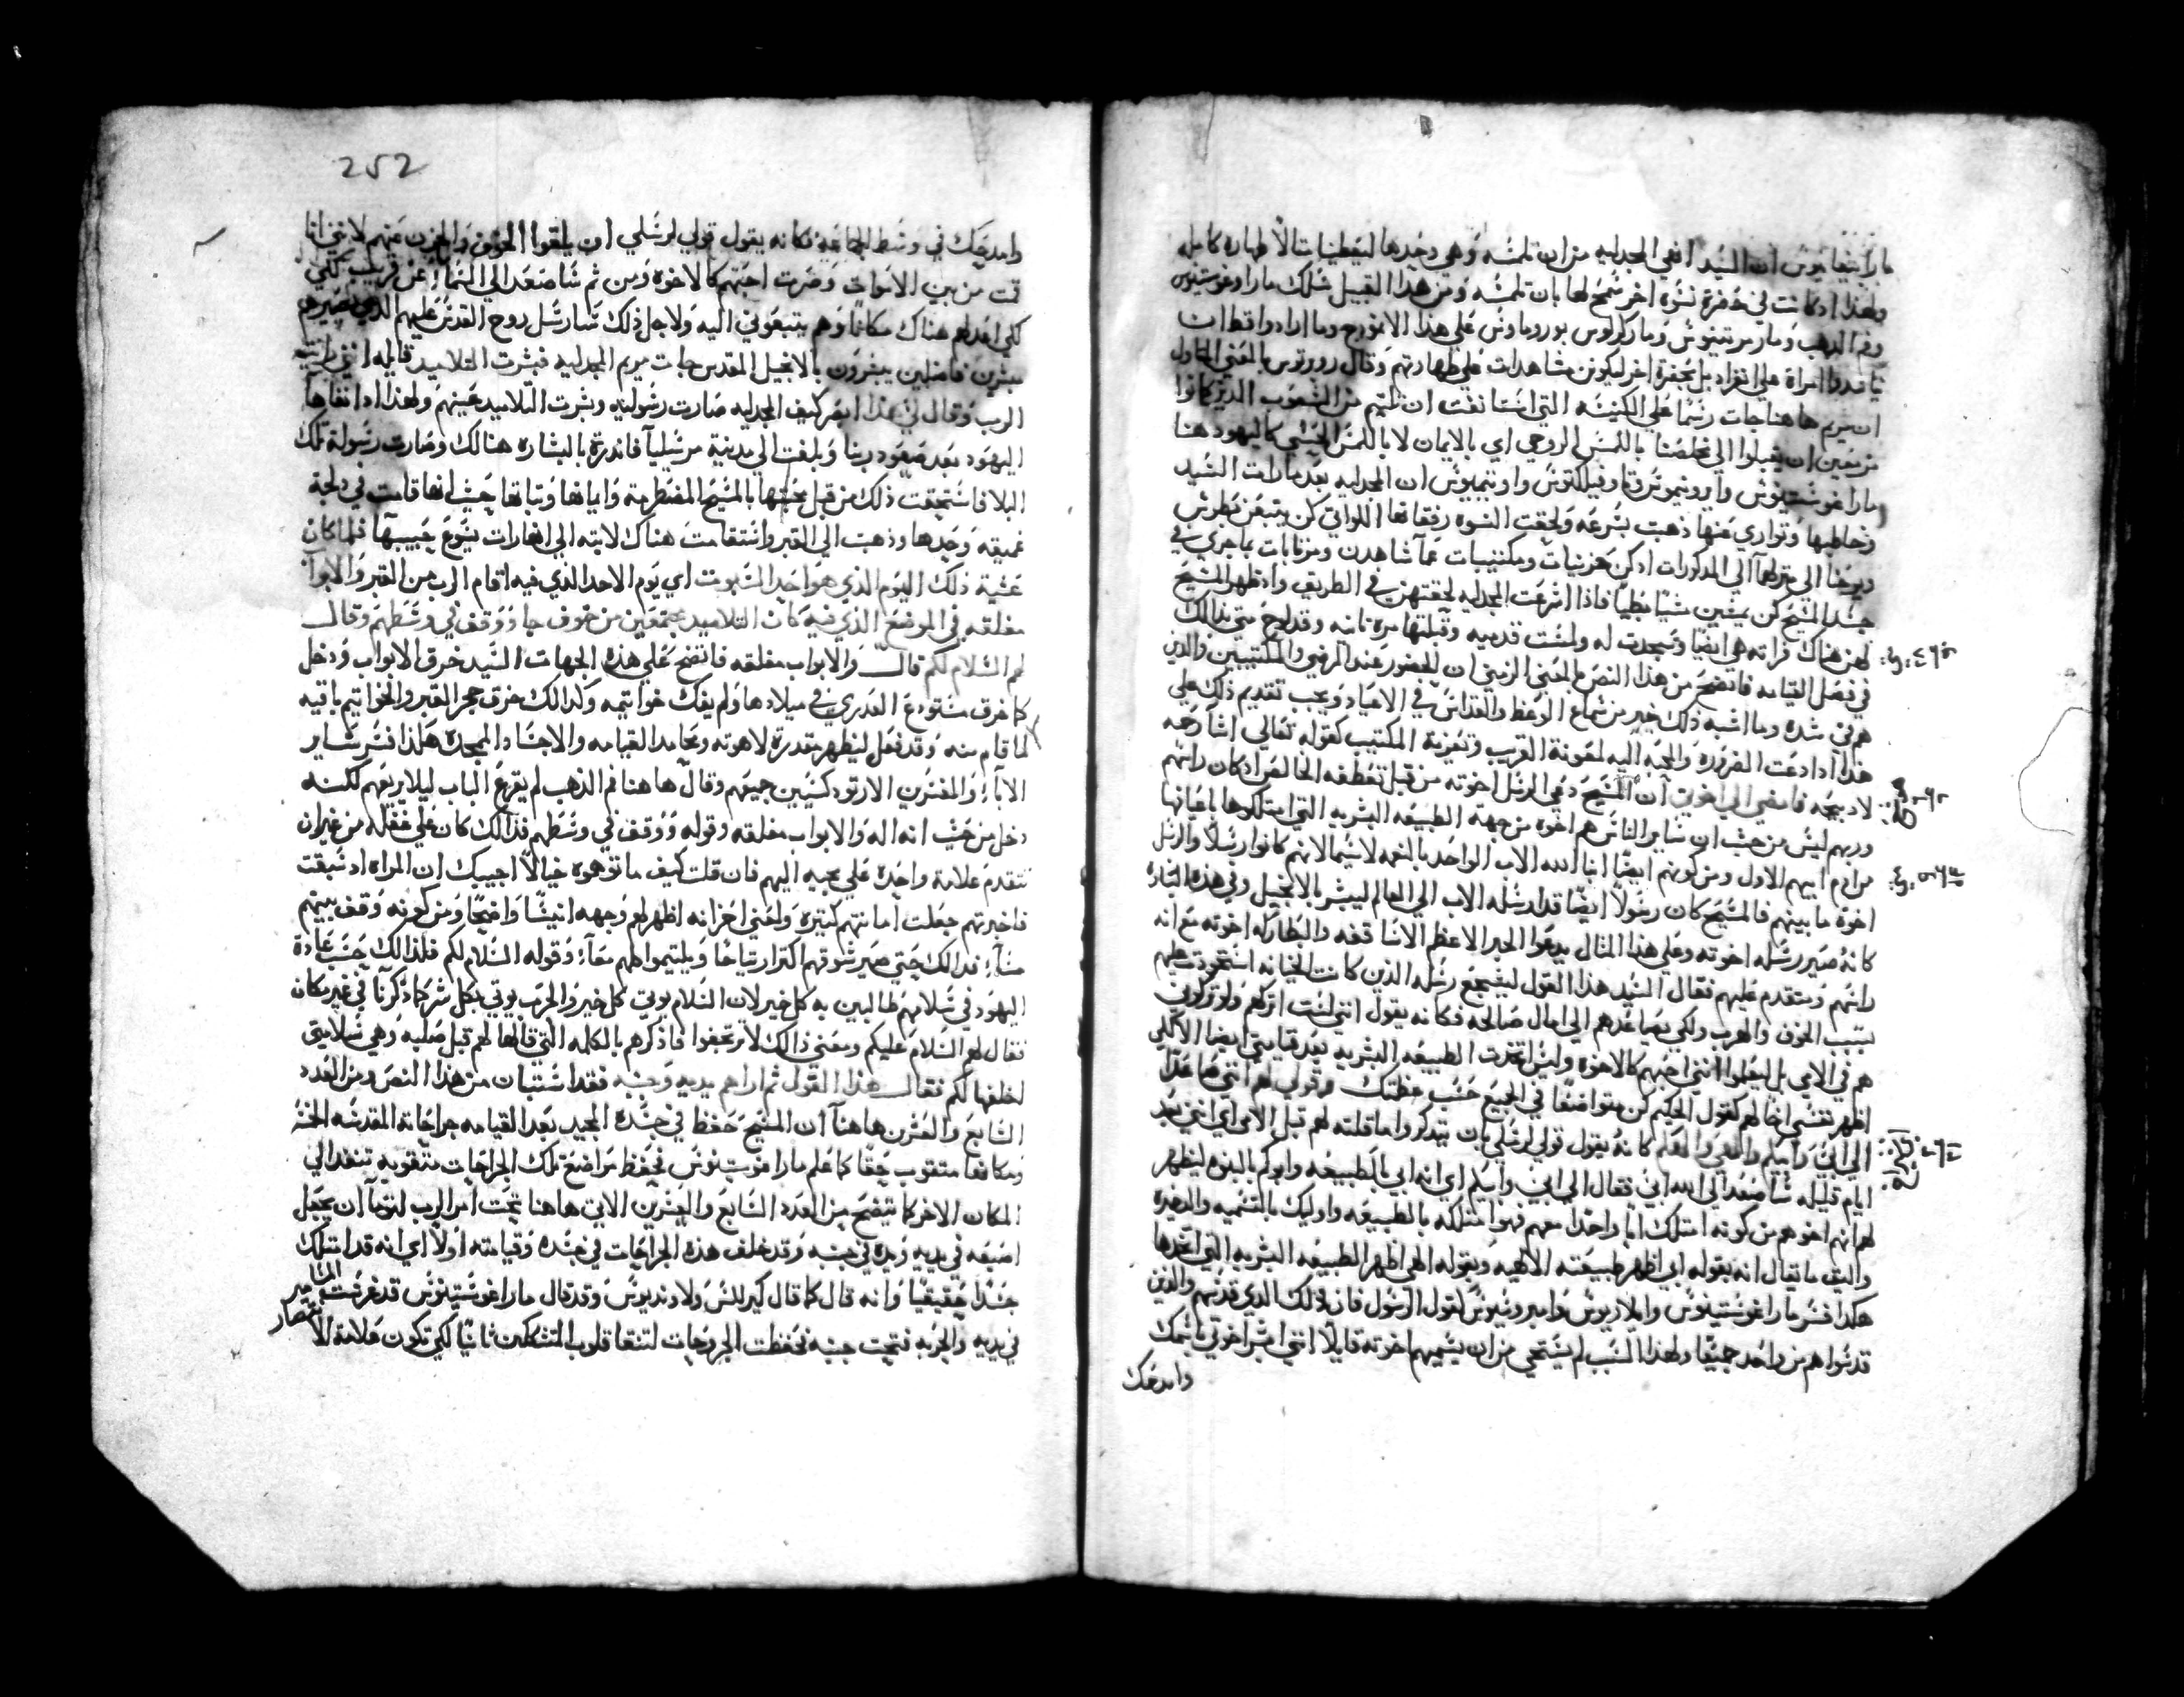 مار ابيفانيوس ان السيد انهي المجدليه من ان تلمسه وهي وحدها ليعطينا مثالاً طهاره كامله
ولهذا اذ كانت في حضرة نسوه اخر سمح لها بان تلمسه ومن هذا القبيل سلك مار اوغوستينوس
وفم الدهب ومار مرتينوس ومار كرلوس بوروماوس علي هذا الانموذج وما ارادوا قط ان
امراة علي انفراد بل بحضرة اخر ليكونن مشاهدات علي طهارتهم وقال روبرتوس بالمعني
ان مريم ها هنا جات رسماً علي الكنيسه التي استانفت ان تلتم من الشعوب الذين كانوا
مزمعين ان يقبلوا الي مخلصنا باللمس الروحي اي بالايمان لا باللمس الحسي كاليهود هنا
مار اغوستينوس وايرونيموس وتاوفيلكتوس واوتيميوس ان المجدليه بعد ما رات السيد
وخاطبها وتواري عنها ذهبت بسرعه ولحقت النسوه رفقاتها اللواتي كن يتبعن بطرس
ويوحنا الي منزلهما الي المدكورات اذ كن حزينات ومكتئبات عما شاهدن ومرتابات بما جري في
جسد المسيح كن يمشين مشياً بطياً فاذا اسرعت المجدليه لحقتهن في الطريق واذ ظهر المسيح
لهن هناك فراته هي ايضاً وسجدت له ولمست قدميه وقبلتها مره تانيه وقد لوح متي بذالك
في فصل القيامه فاتضح من هذا النص بالمعني الرمزي ان الحضور عند المرضي والمكتيبين والذين
هم في شده وما اشبه ذلك خير من سماع الوعظ والقداس في الاعياد ويجب تقديم ذلك علي
هذا اذا دعت الضروره والمحبه اليه لمعونة القريب وتعزية المكتيب كقوله تعالي اشا رحمه
لا دبيحه فامضي الي اخوتي ان المسيح دعي الرسل اخوته من قبل تعطفه الخالص اذ كان راسهم
وربهم ليس من حيث ان ساير الناس هم اخوه من جهة الطبيعه البشريه التي امتلكوها باعيانها
من ادم ابيهم الاول ومن كونهم ايضاً ابنا الله الاب الواحد بالنعمه لا سيما لانهم كانوا رسلاً والرسل
اخوة ما بينهم فالمسيح كان رسولاً ايضاً قد ارسله الاب الي العالم ليبشر بالانجيل وفي هذه البشاره
كانه صير رسله اخوته وعلي هذا المثال يدعوا الحبر الاعظم الاساقفه والبطاركه اخوته مع انه
راسهم ومتقدم عليهم فقال السيد هذا القول ليشجع رسله الذين كانت الخيانه استحوذت عليهم
بسبب الخوف والهرب ولكي يصاعدهم الي امال صالحه فكانه يقول انني لست اتركهم ولو تركوني
هم في الامي بل ليعلموا انني احبهم كالاخوه ولين اتخدت الطبيعه البشريه بعد قيامتي ايضاً لاكي
اظهر نفسي اخا لهم كقول الحكيم كن متواضعاً في الجميع حسب عظمتك وقولي لهم انني صاعدا
الي ابي وابيكم والهي والهكم كانه يقول قولي لرسلي بان يتدكروا ما قلته لهم قبل الامي اي انني بعد
ايام قليله ساصعد الي الله ابي فقال الي ابي وابيكم اي انه ابي بالطبيعه وابوكم بالبنوه ليظهر
لهم انهم اخوهم من كونه امتلك اباً واحداً معهم فهو امتلكه بالطبيعه واوليك بالتسميه والدخيره
واليق ما تقال انه بقوله ابي اظهر طبيعته الالهيه وبقوله الهي اظهر الطبيعه البشريه التي اتخدها
هكذا فسر مار اغوستينوس وايلاريوس وامبروسيوس لقول الرسول فان ذلك الدي قدسهم والذين
قدسوا هم من واحد جميعاً ولهذا السبب لم يستحي من ان يسميهم اخوته قايلاً انني ابشر اخوتي باسمك
وامدحك
252
وامدحك في وسط الجماعة فكانه يقول قولي لرسلي ان يلقوا الخوف والحزن عنهم لانني انا
قمت من بين الاموات وصرت احبهم كالاخوه ومن ثم ساصعد الي السماء عن قريب لكي
لكي اعد لهم هناك مكاناً وهم يتبعوني اليه ولاجل ذلك سارسل روح القدس عليهم الذي يصيرهم
مبشرين فاضلين يبشرون بالانجيل المقدس جات مريم المجدليه فبشرت التلاميد قايله انني رايت
الرب وقال لي هذا انظر كيف المجدليه صارت رسوليه وبشرت التلاميد عينهم ولهذا اذ انفاها
اليهود بعد صعود ربنا وبلغت الي مدينة مرسيليا فاندرت بالبشاره هنالك وصارت رسولة تلك
البلاد فاستحقت ذلك من قبل محبتها بالمسيح المضطرمه وايمانها وثباتها حيث انها قامت في دلجة
عميقه وحدها وذهبت الي القبر واستقامت هناك لابثه الي انها رات يسوع حبيبها فلما كان
عشية ذلك اليوم الذي هو احد السبوت اي يوم الاحد الذي فيه اقام الرب من القبر والابواب
مغلقه في الموضع الذي فيه كان التلاميد مجتمعين من خوف جا ووقف في وسطهم وقال
لهم السلام لكم قال والابواب مغلقه فاتضح علي هذه الجهات السيد خرق الابواب ودخل
كما خرق مستودع العدري في ميلادها ولم يفك خواتيمه وكدالك خرق حجر القبر والخواتيم باقيه
لما قام منه وقد فعل ليظهر بقدرة لاهوته ومحامد القيامه والاجساد الممجده هكذا فسر ساير
الاباء والمفسرين الارتودكسيين جميعهم وقال ها هنا فم الدهب لم يقرع الباب ليلا يريعهم لكنه
دخل من حيث انه اله والابواب مغلقه وقوله ووقف في وسطهم فدالك كان علي غفله من غير ان
تتقدم علامة واحدة علي مجيه اليهم فان قلت كيف ما توهموه خيالاً اجيبك ان المراه اذ سبقت
فاخبرتهم جعلت امانتهم كبيره واعني اعز انه اظهر لهم وجهه انيساً واضحاً ومن كونه وقف بينهم
مساء فدالك حتي صير شوقهم اكتر ارتياحاً ويلتيموا كلهم معاً وقوله السلام لكم فلذالك حسب عادة
اليهود في سلامهم طالبين به كل خير لان السلام يوتي كل خير والحرب يوتي بكل شر كما دكرنا في غير مكان
فقال لهم السلام عليكم ومعني ذالك لا ترتجفوا فاذكرهم بالكلمه التي قالها لهم قبل صلبه وهي سلامتي
اخلفها لكم فقال هذا القول ثم اراهم يديه وجنبه فقد استبان من هذا النص ومن العدد
السابع والعشرين ها هنا ان المسيح حفظ في جسده المجيد بعد القيامه جراحاته المقدسه الخمسه
ومكانها متقوب حقاً كما علم مار اغوستينوس فحفظ مواضع تلك الجراحات متقوبه تنفد الي
المكان الاخر كما يتضح من العدد السابع والعشرين الاتي ها هنا تحت امر الرب لتوما ان يجعل
اصبعه في يديه ويده في جنبه وقد خلف هذه الجراحات في جسده وقيامته اولاً اي انه قد امتلك
جسداً حقيقياً وانه قال كما قال كيرللس ولاونديوس وقد قال مار اغوستينوس قد غرقت المسامير
في يديه والحربه فتحت جنبه فحفظت الجروحات لتشفا قلوب المتشككين ثانياً لكي تكون علامة الانتصار